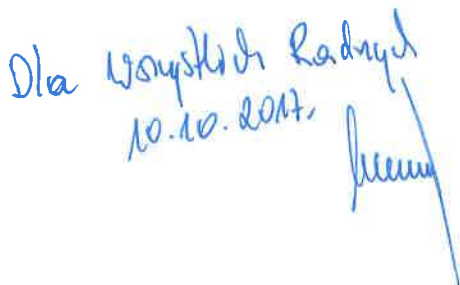 Dla Wszystkich Radnych
10.10.2017.